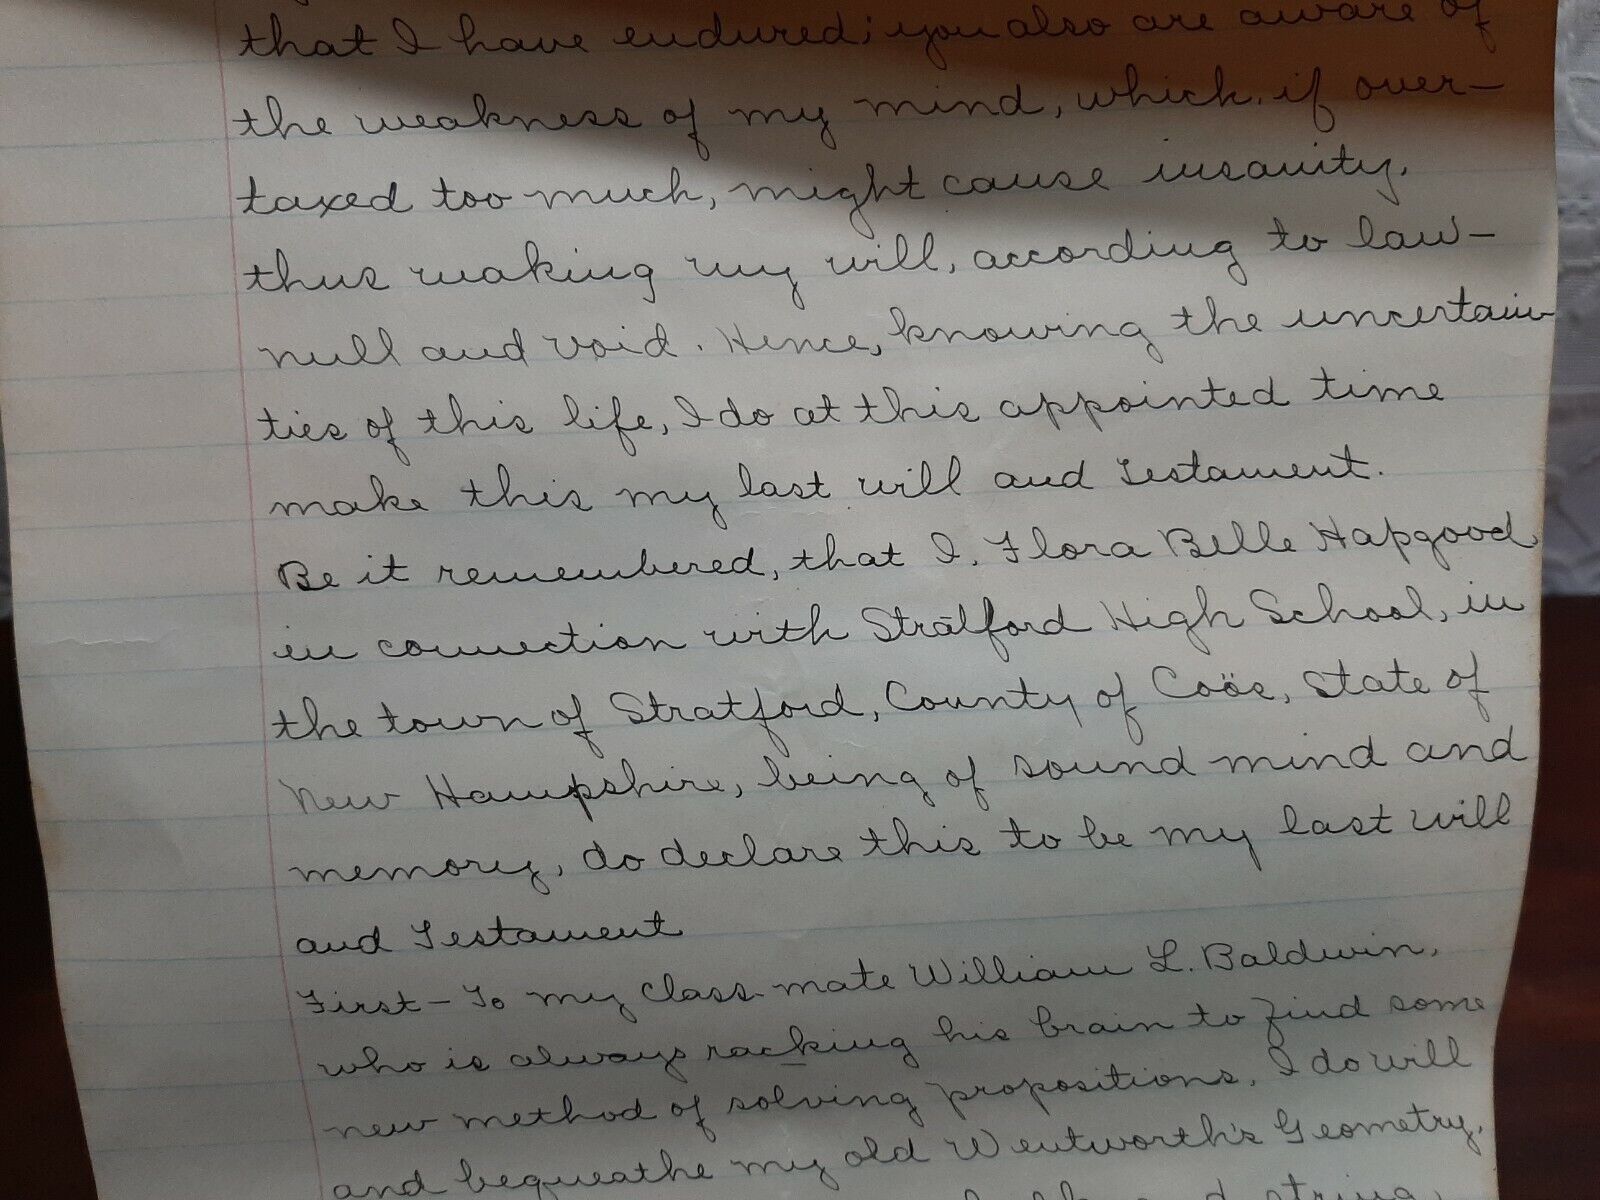 that I have endured; you also are aware of
the weakness of my mind, which, if over-
taxed too much, might cause insanity,
thus making my will, according to law-
null and void. Hence, knowing the uncertain
ties of this life, I do at this appointed time
make this my last will and Testament.
Be it remembered, that I, Flora Belle Hapgood
in connection with Stratford High School, in
the town of Stratford, County of Coös, State of
New Hampshire, being of sound mind and
memory, do declare this to be my last will
and Testament
First - To my class-mate William L. Baldwin,
who is always racking his brain to find some
new method of solving propositions, I do will
and bequeathe my old Wentworth's Geometry,
string,